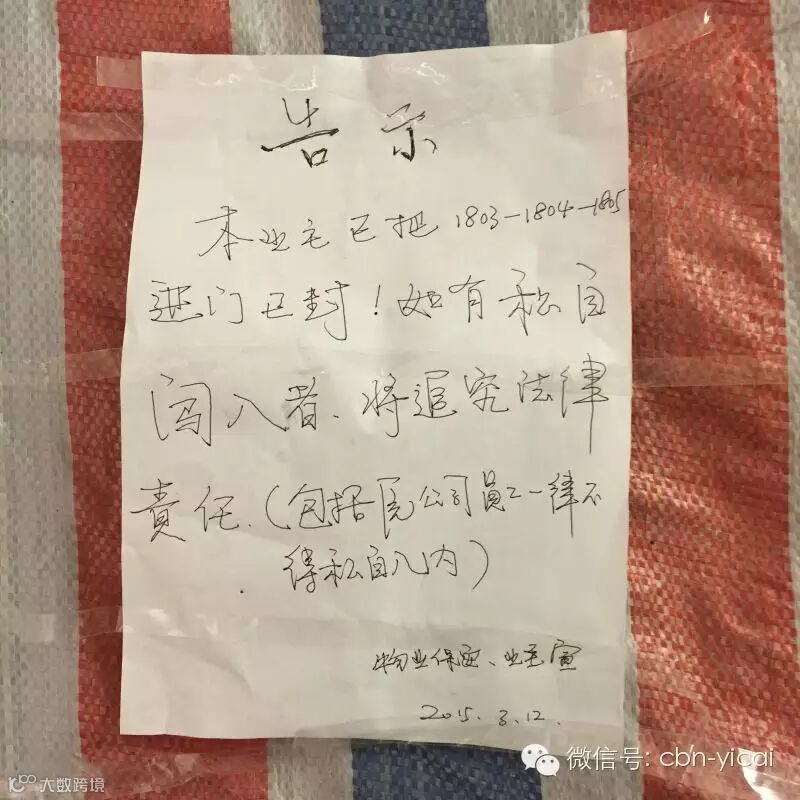 告示
本业主已把1803-1804-1805
进门已封！如有私自
闯入者、将追究法律
責任.(包括原公司員工一律不
得私自入内)
物业保安、业主宣
2015.3.12.
微信号: cbn-yicai
大数跨境